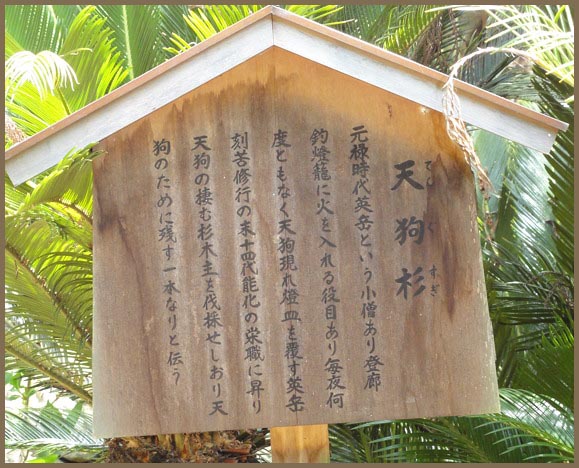 天狗杉
てんぐすぎ
元禄時代英岳という小僧あり登廊
釣燈籠に火を入れる役目あり毎夜何
度ともなく天狗現れ燈皿を覆す英岳
刻苦修行の末十四代能化の栄職に昇り
天狗の棲む杉木立を伐採せしおり天
狗のために残す一本なりと伝う